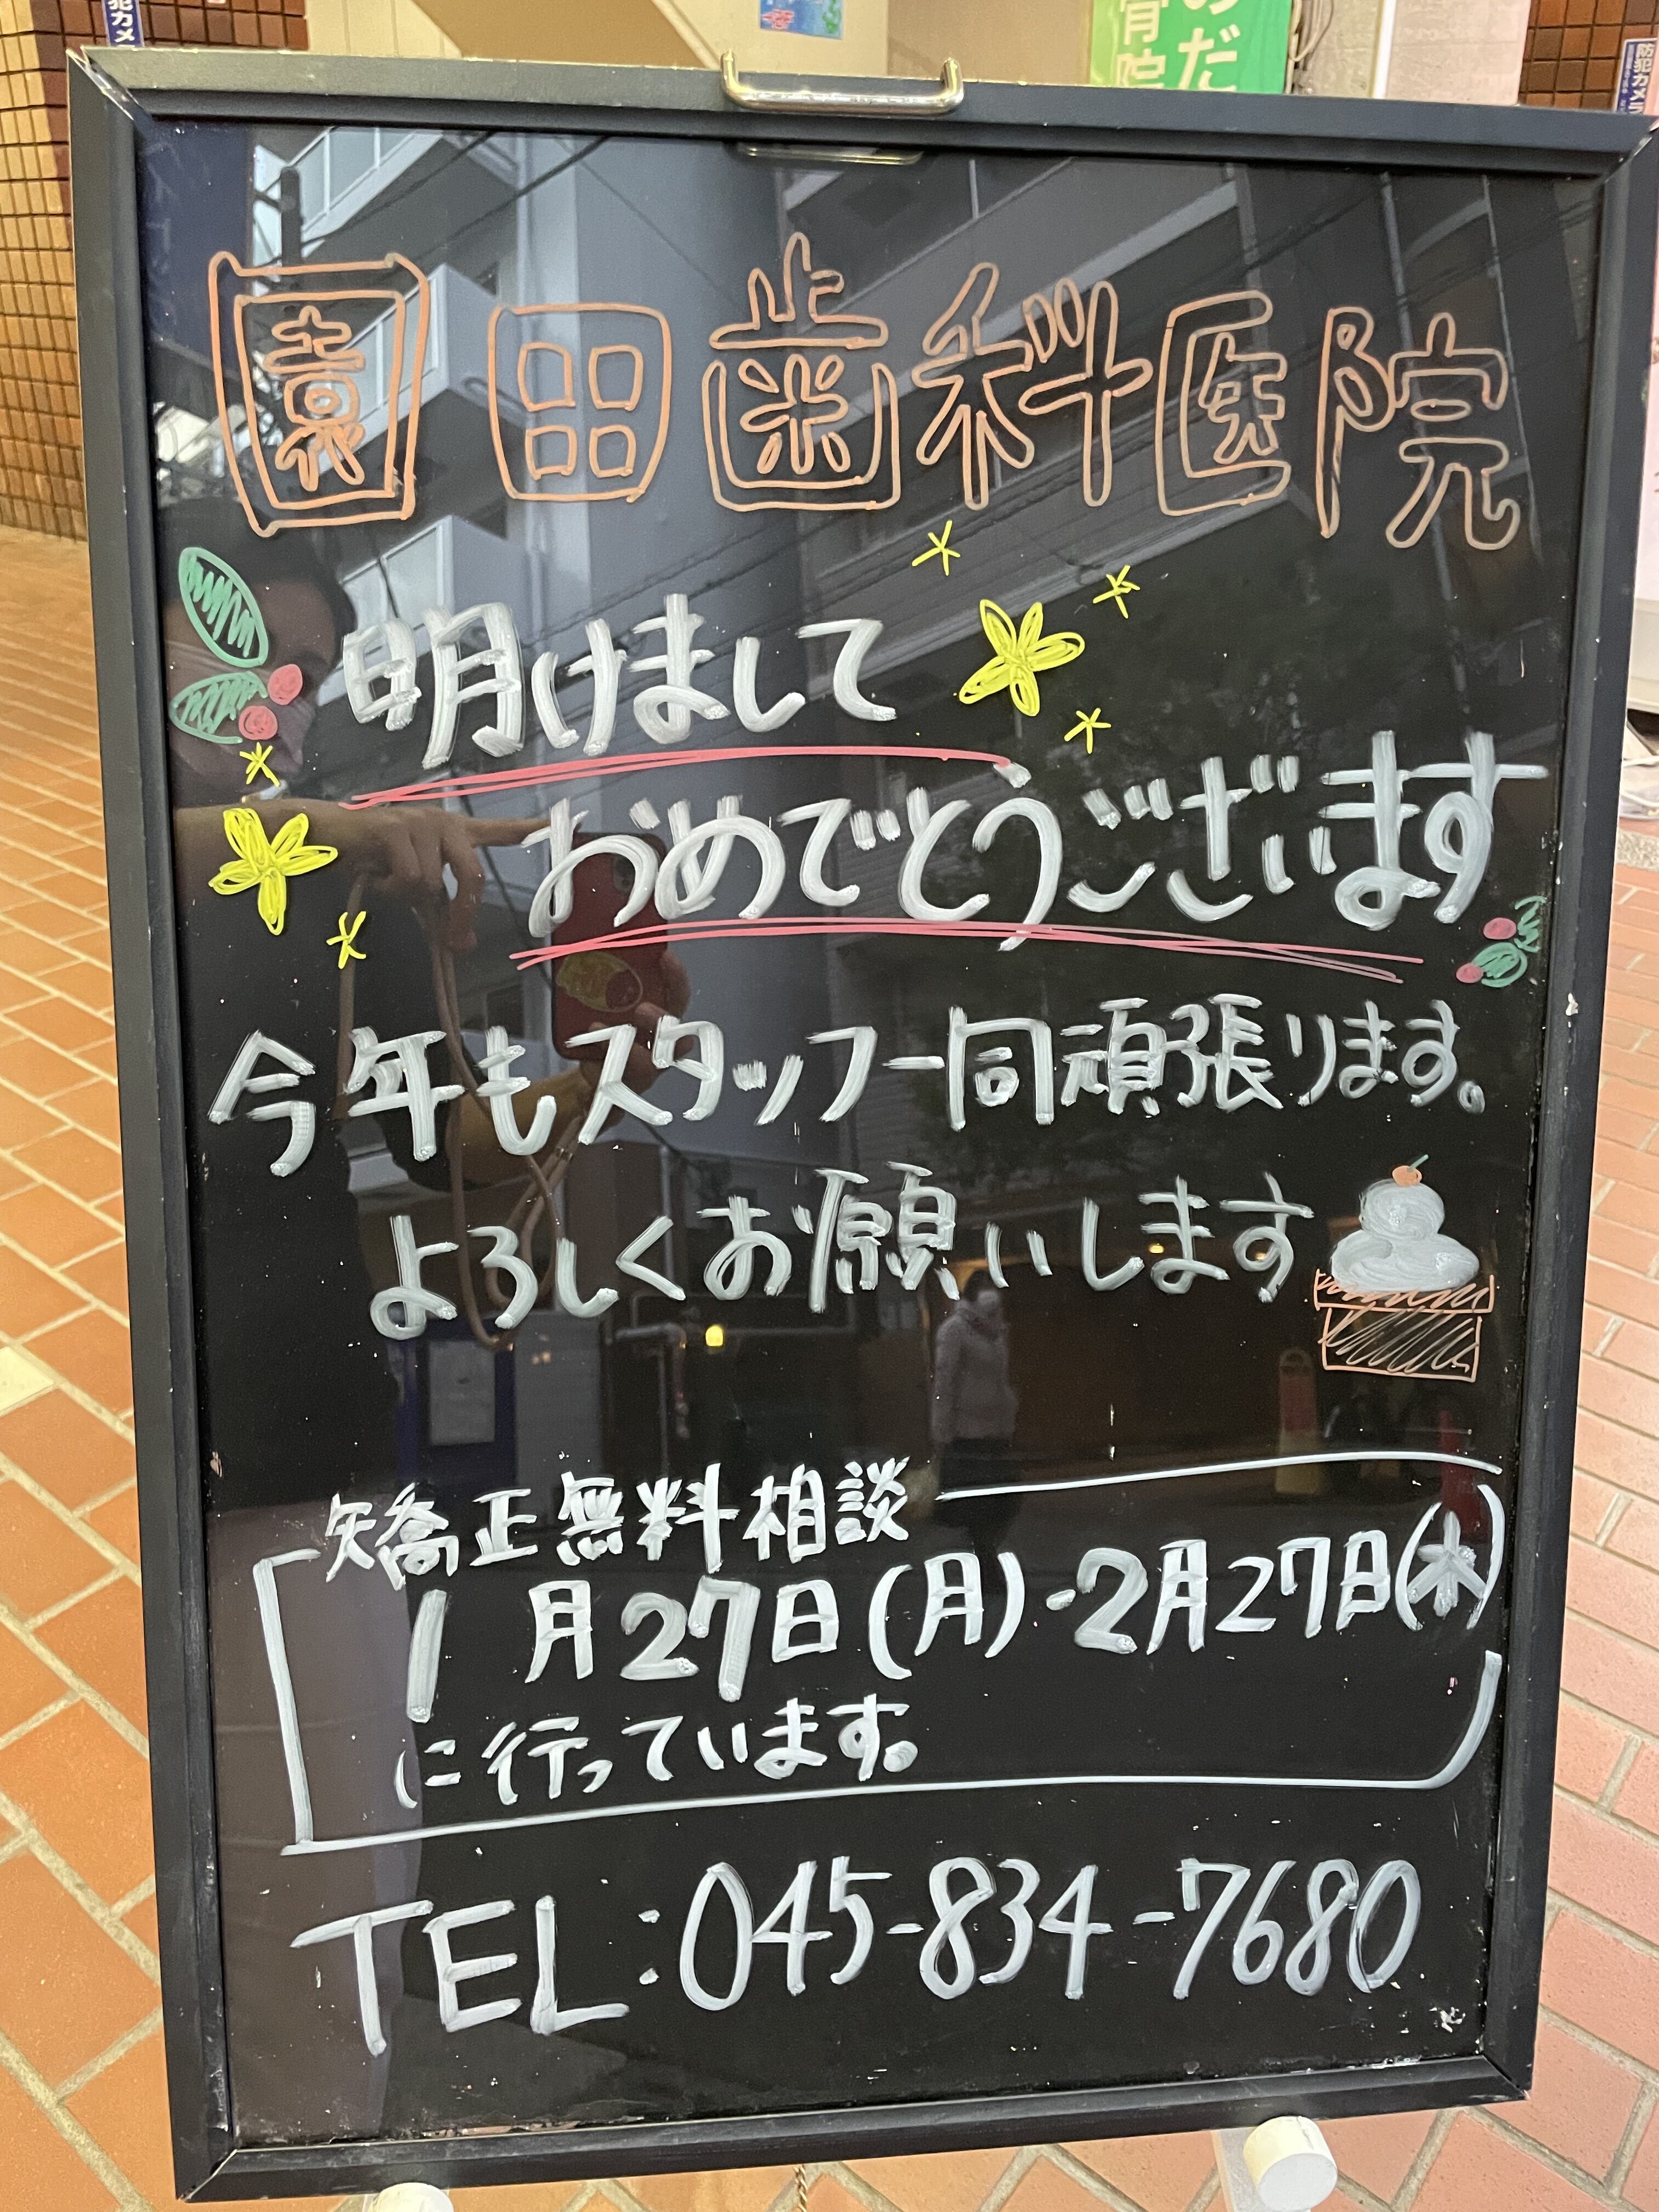 園田歯科医院
明けまして
おめでとうございます
今年もスタッフ一同頑張ります。
よろしくお願いします
矯正無料相談
1月27日(月)・2月27日(木)
に行っています。
TEL:045-834-7680